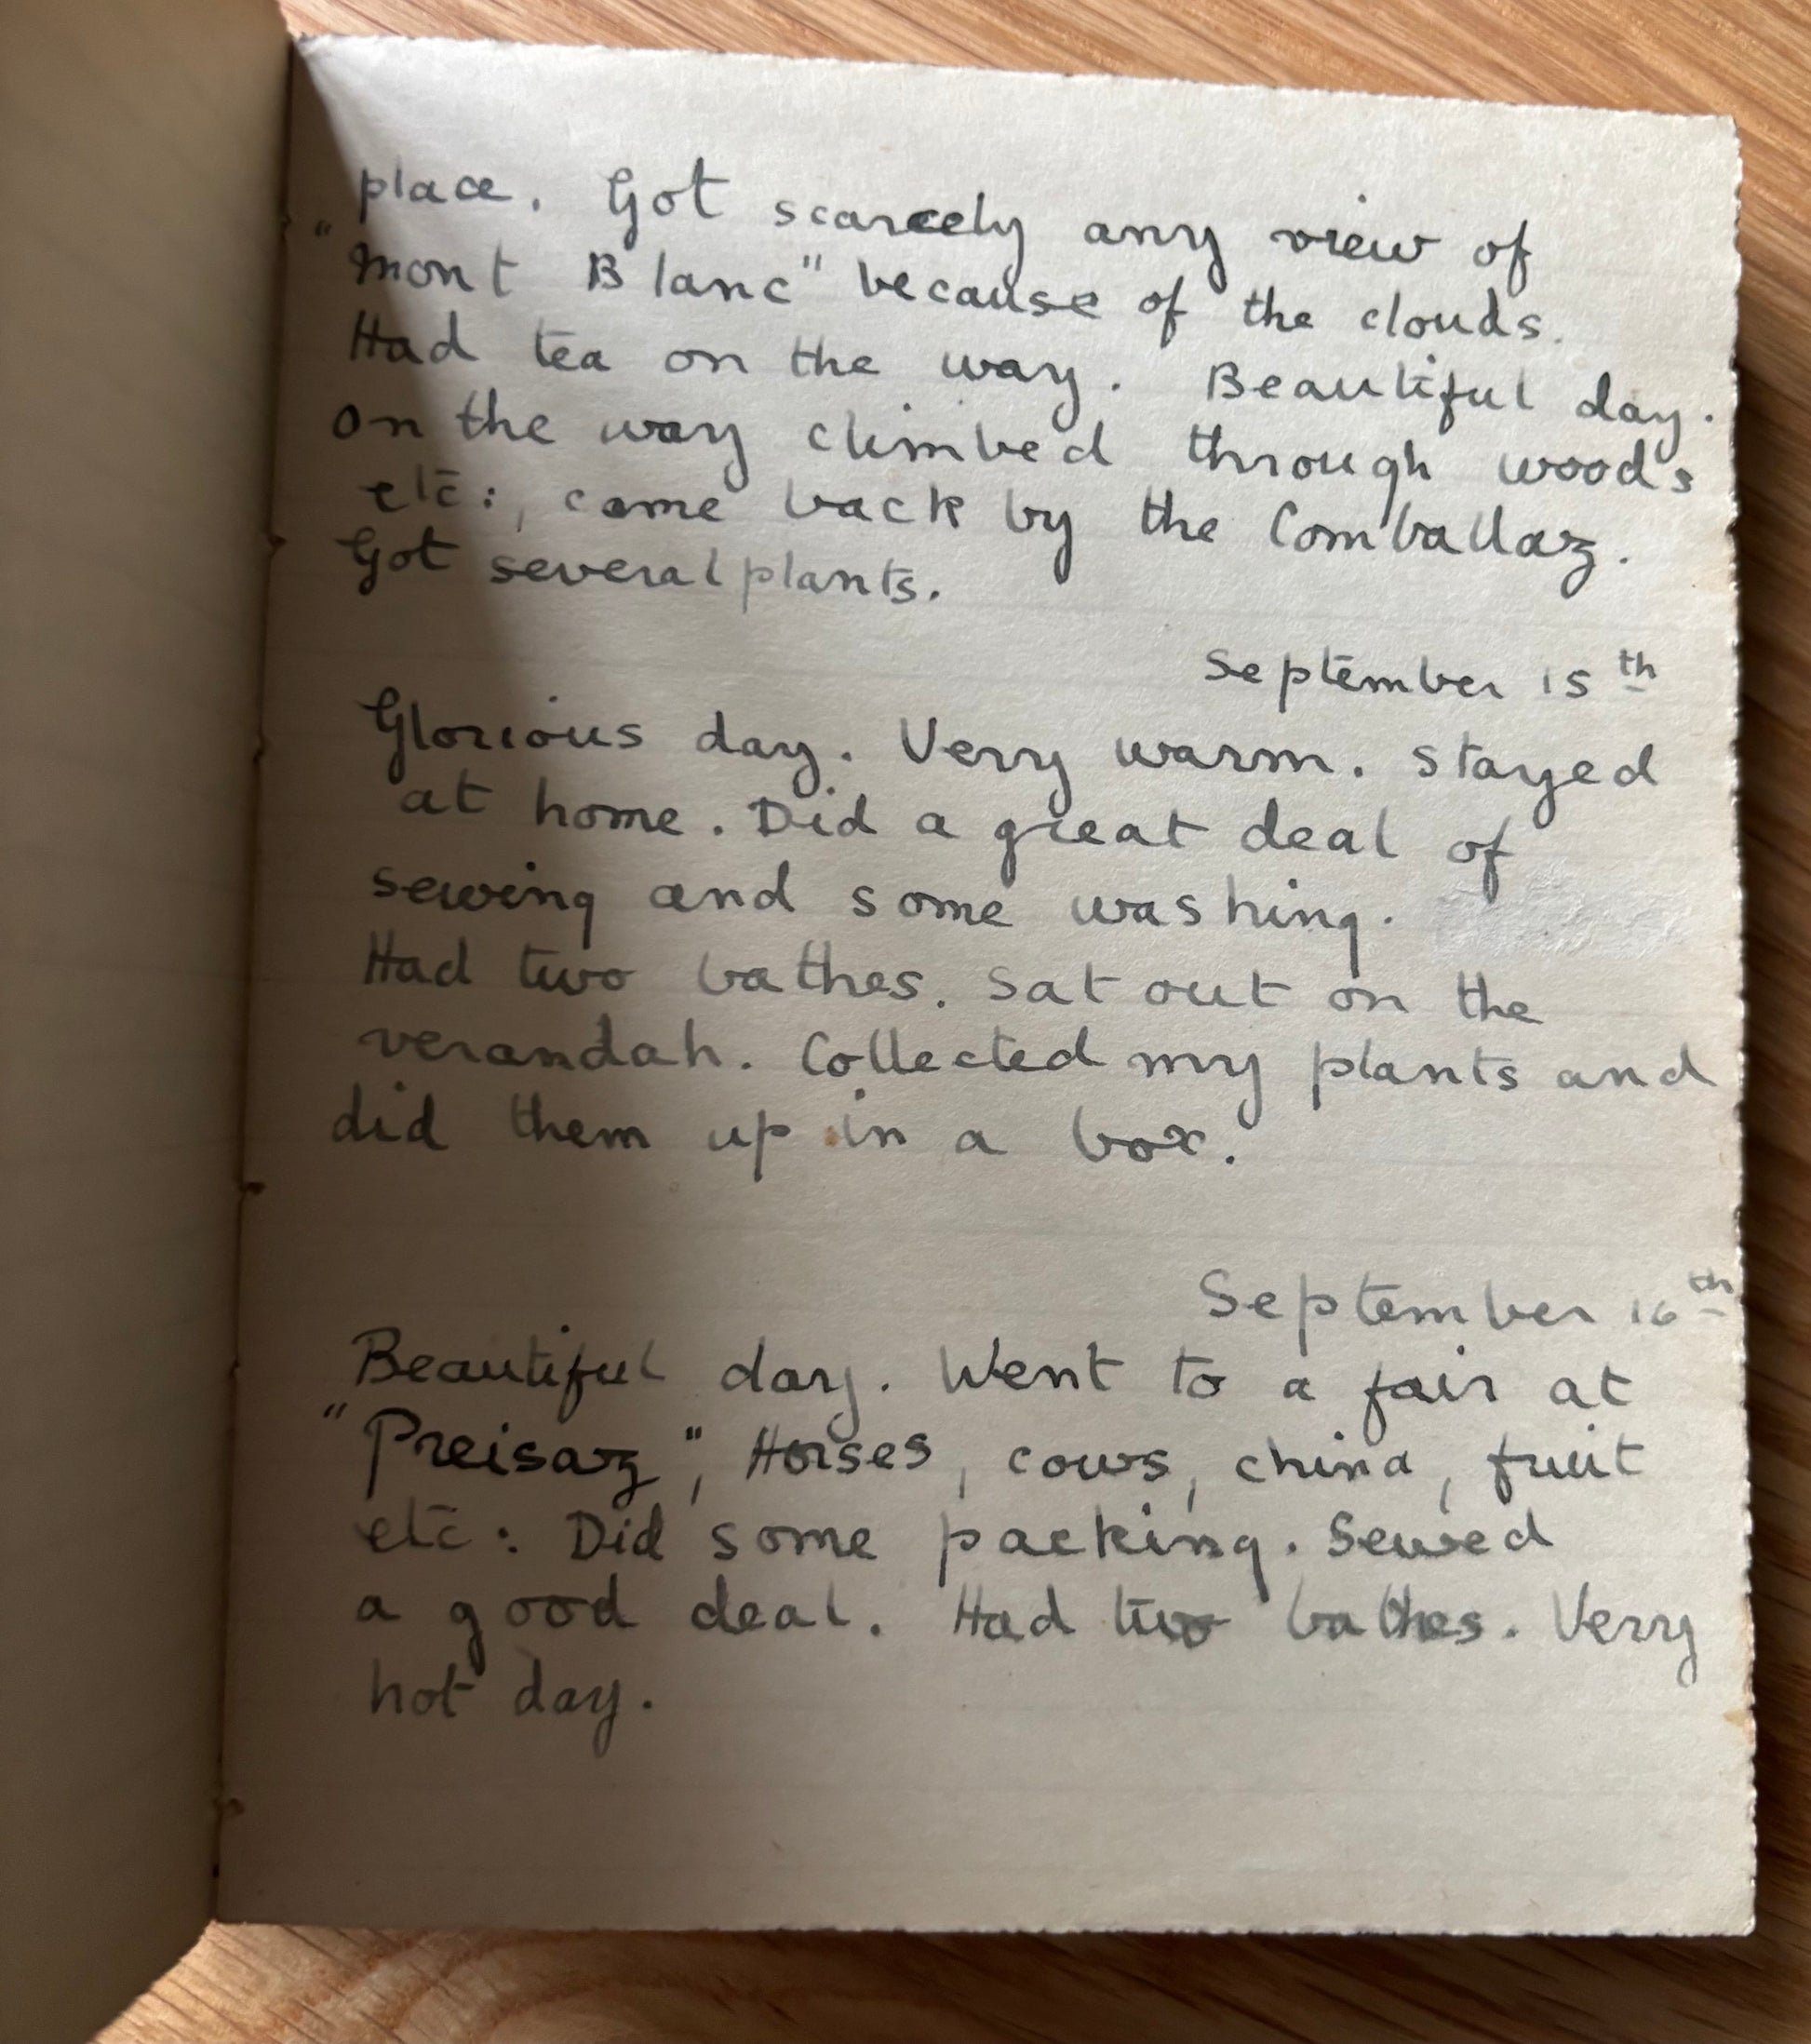 place. Got scarcely any view of
"Mont Blanc" because of the clouds.
Had tea on the way. Beautiful day.
on the way climbed through woods
etc:, came back by the Comballaz.
Got several plants.
September 15th
Glorious day. Very warm. Stayed
at home. Did a great deal of
sewing and some washing.
Had two bathes. Sat out on the
verandah. Collected my plants and
did them up in a box.
September 16th
Beautiful day. Went to a fair at
"Preisaz", Horses, cows, china, fruit
etc: Did some packing. Sewed
a good deal. Had two bathes. Very
hot day.